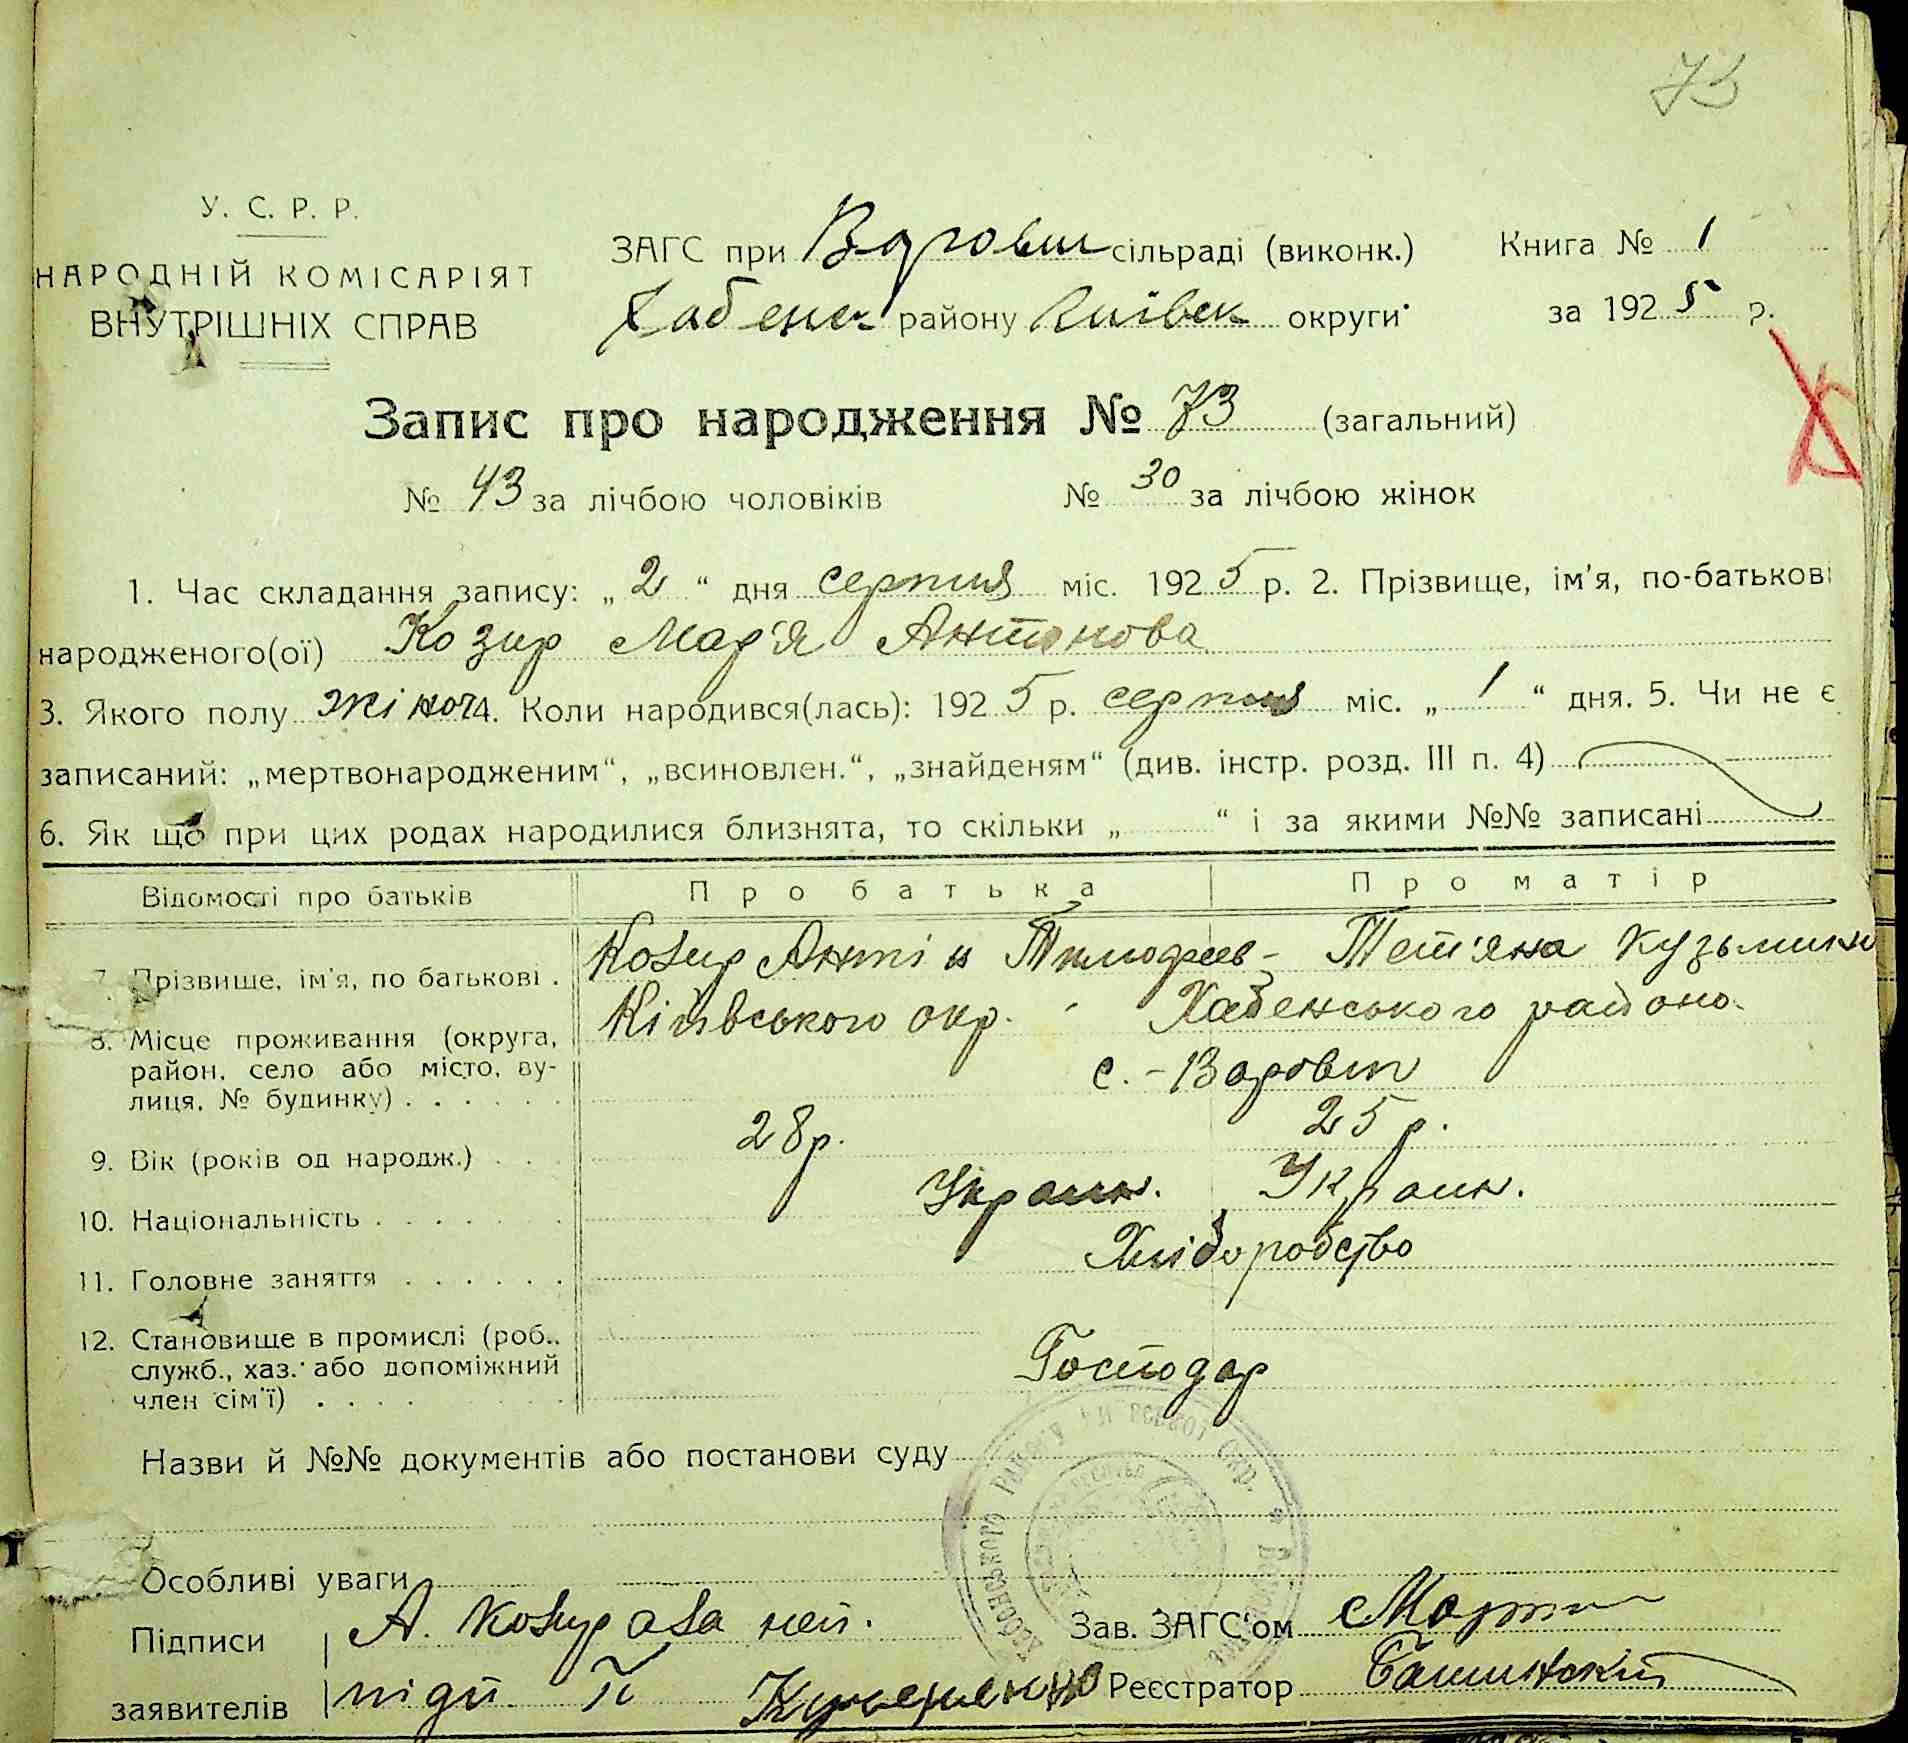 73
У. С. Р. Р.
НАРОДНІЙ КОМІСАРІЯТ
ВНУТРІШНІХ СПРАВ
ЗАГС при Варовш сільраді (виконк.)
Хабенск району Київск округи
Книга № 1
за 1925 р.
Запис про народження № 73 (загальний)
№ 43 за лічбою чоловіків № 30 за лічбою жінок
1. Час складання запису: „2“ дня серпня міс. 1925 р. 2. Прізвище, ім'я, по-батькові
народженого(ої) Козир Мар'я Антонова
3. Якого полу жіноч 4. Коли народився(лась): 1925 р. серпня міс. „1“ дня. 5. Чи не є
записаний: „мертвонародженим“, „всиновлен.“, „знайденям“ (див. інстр. розд. III п. 4)
6. Як що при цих родах народилися близнята, то скільки „ “ і за якими №№ записані
Відомості про батьків Про батька Про матір
7. Прізвище, ім'я, по батькові . Козир Антін Тимофеев- Тет'яна Кузьмин
8. Місце проживання (округа, Київського окр. Хабенського району
район, село або місто, ву- с. - Варовш
лиця, № будинку)
9. Вік (років од народж.) 28 р. 25 р.
10. Національність Україн. Україн.
11. Головне заняття Хліборобство
12. Становище в промислі (роб.,
служб., хаз. або допоміжний Господар
член сім'ї)
Назви й №№ документів або постанови суду
Особливі уваги
Підписи А. Козир а за неп.
заявителів підп
Зав. ЗАГС'ом
Реєстратор